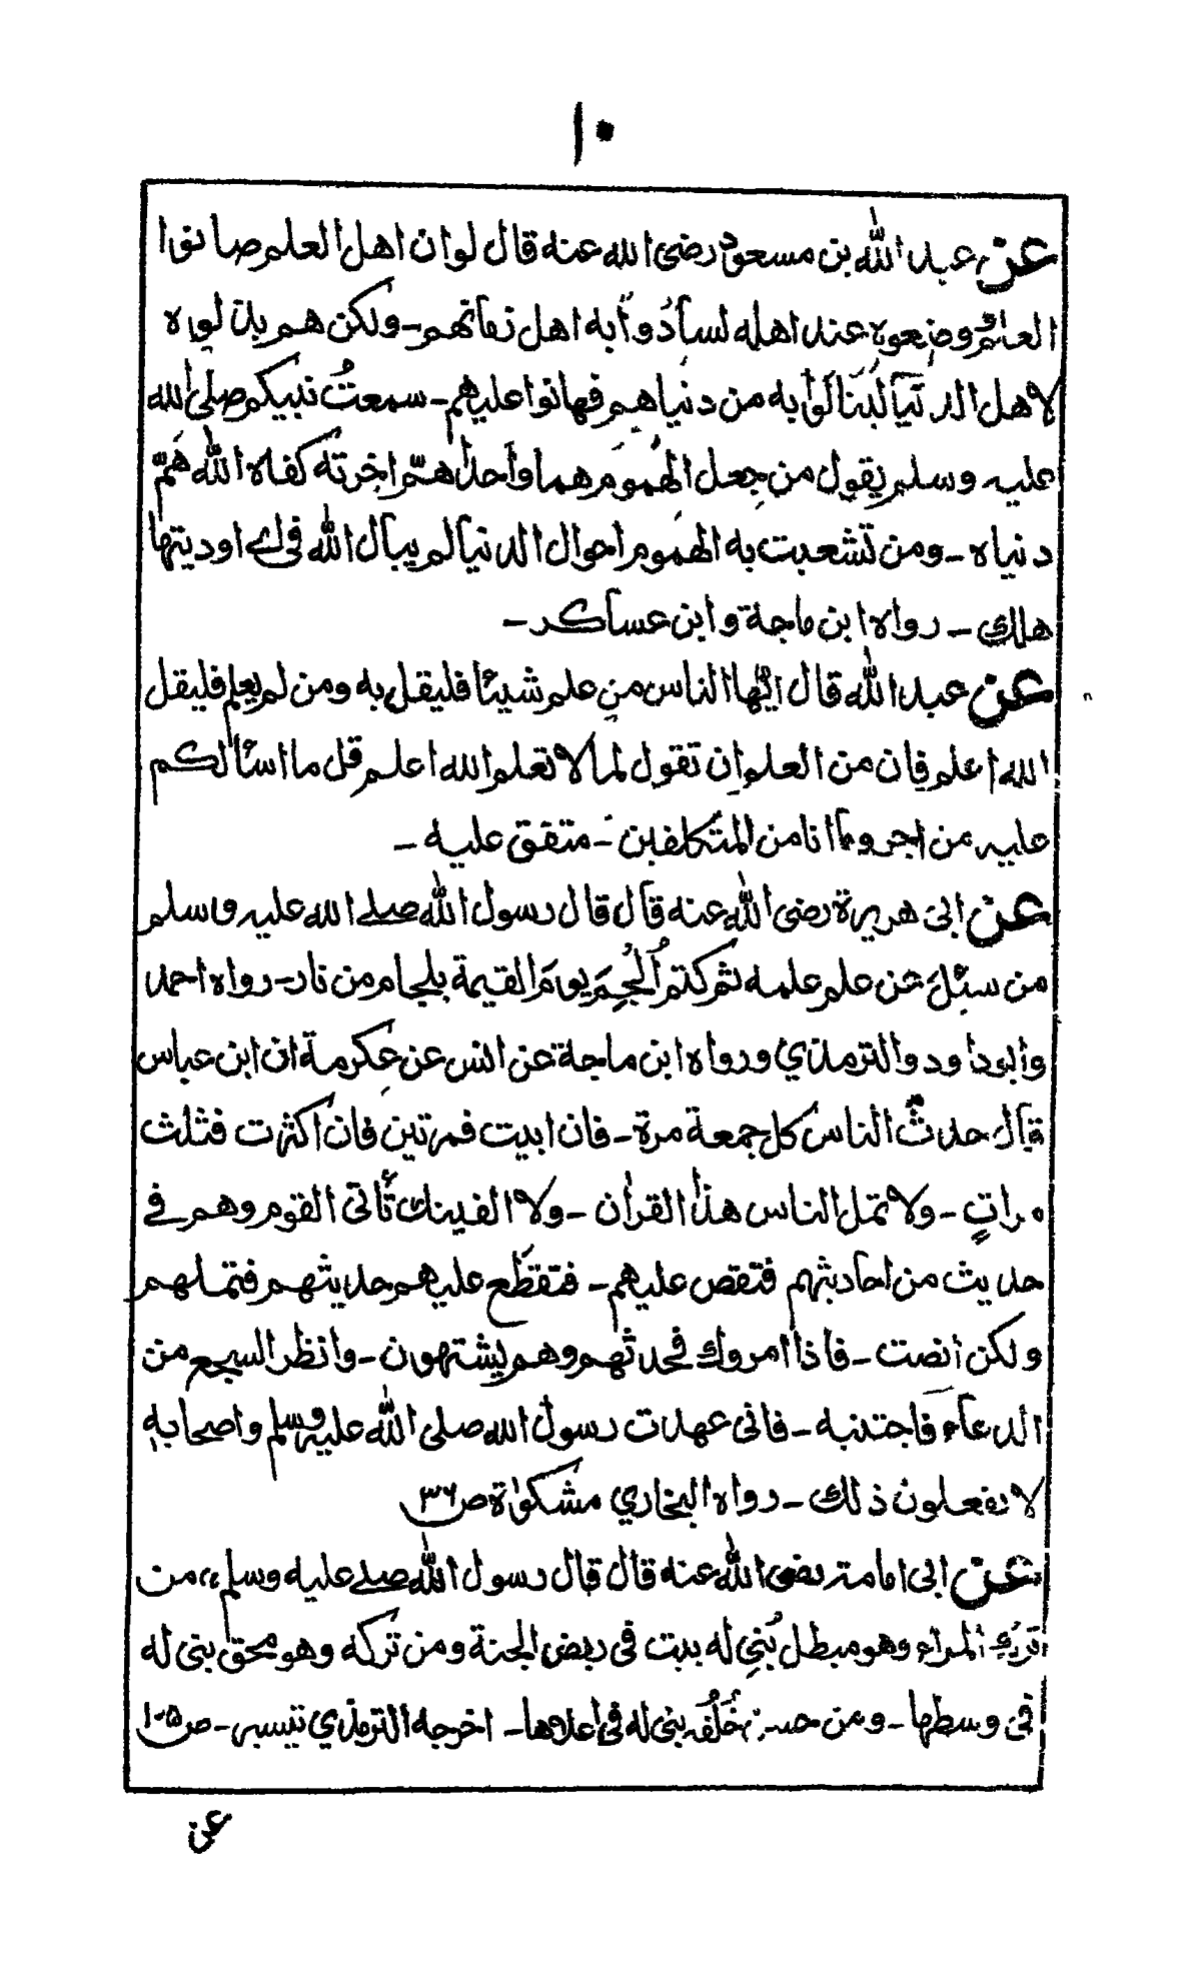 ١٠
عن عبد الله بن مسعود رضى الله عنه قال لو ان اهل العلم صانوا
العلم وضعوه عند اهله لسادوا به اهل زمانهم ـ ولكن هم بذلوره
لاهل الدنيا لينالوا به من دنياهم فهانوا عليهم ـ سمعتُ نبيكم صلى الله
عليه وسلم يقول من جعل الهموم هما واحدا همّ اخرته كفاه الله همّ
دنياه ـ ومن تشعبت به الهموم احوال الدنيا لم يبال الله فى اے اوديتها
هلك ـ رواه ابن ماجة وابن عساكر ـ
عن عبد الله قال ايّها الناس من علم شيئا فليقل به ومن لم يعلم فليقل
الله اعلم فان من العلم ان تقول لما لا تعلم الله اعلم قل ما اسألكم
عليه من اجر وما انا من المتكلفين ـ متفق عليه ـ
عن ابى هريرة رضى الله عنه قال قال رسول الله صلے الله عليه وسلم
من سئل عن علم علمه ثم كتم اُلجِمَ يومَ القيمة بلجام من نار ـ رواه احمد
وابوداود والترمذي ورواه ابن ماجة عن انس عن عكرمة ان ابن عباس
قال حدث الناس كل جمعة مرة ـ فان ابيت فمرتين فان اكثرت فثلث
مراتٍ ـ ولا تمل الناس هذا القرأن ـ ولا الفينك تأتى القوم وهم فے
حديث من احاديثهم فتقص عليهم ـ فتقطع عليهم حديثهم فتملهم
ولكن أنصت ـ فاذا امروك فحدثهم وهم يشتهون ـ وانظر السجع من
الدعاء فاجتنبه ـ فانى عهدت رسول الله صلى الله عليه وسلم واصحابه
لا يفعلون ذلك ـ رواه البخاري مشكوٰة ص٣٦
عن ابى امامة رضى الله عنه قال قال رسول الله صلے عليه وسلم، من
ترك المراء وهو مبطل بُنى له بيت فى ربض الجنة ومن تركه وهو محق بنى له
فى وسطها ـ ومن حسن خُلُقه بنى له فى اعلاها ـ اخرجه الترمذي تيسير ـ ص١٠٥
عن